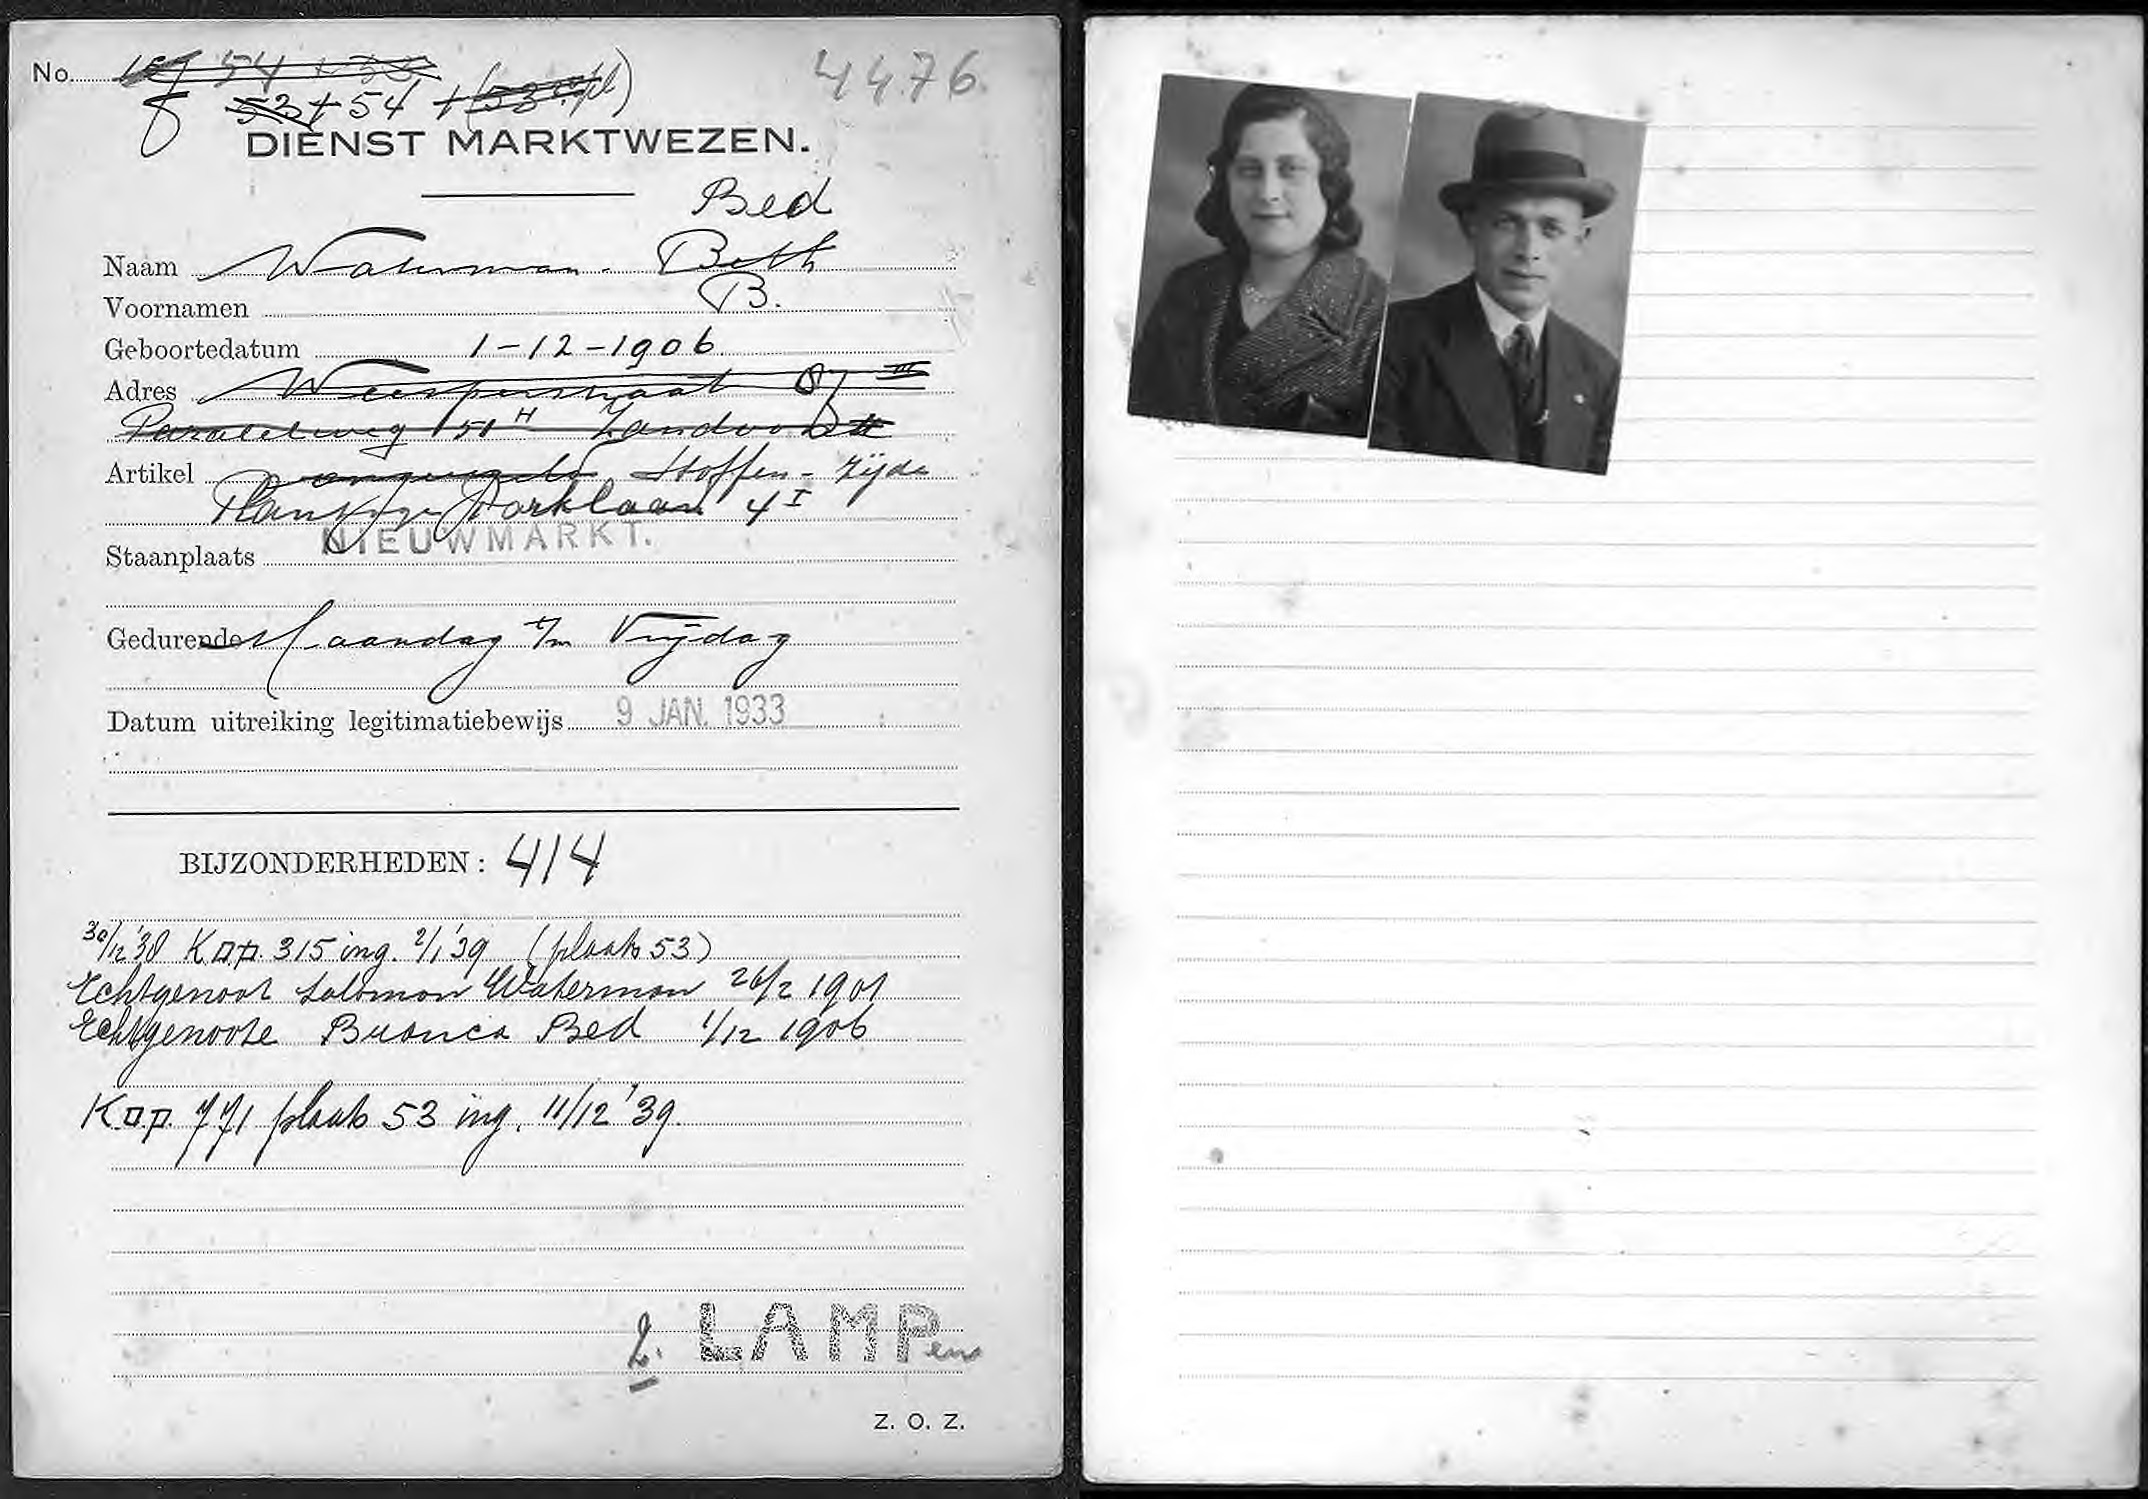 No. 54 + 53 4476.
53 + 54 + (53 pl)
DIENST MARKTWEZEN.
Bed
Naam Waterman. Beth
Voornamen B.
Geboortedatum 1-12-1906
Adres Weesperstraat 87 III
Paralelweg 151 H Zandvoort
Artikel ongeregeld Stoffen - zijde
Plantage Parklaan 4 I
NIEUWMARKT.
Staanplaats
Gedurende Maandag t/m Vrijdag
Datum uitreiking legitimatiebewijs 9 JAN. 1933
BIJZONDERHEDEN: 414
30/12 '38 K 315 ing. 2/1 '39 (plaats 53)
Echtgenoot Salomon Waterman 26/2 1901
Echtgenoote Branca Bed 1/12 1906
K 771 plaats 53 ing. 11/12 '39.
2. LAMPen
Z. O. Z.